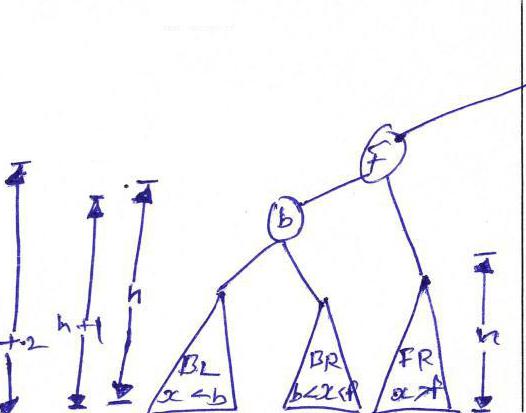 f
b
h
h+1
+2
h
BL
x < b
BR
b<x<f
FR
x >f